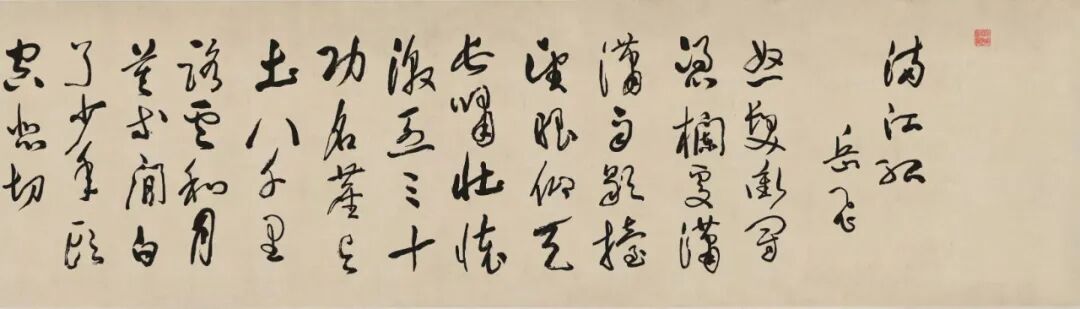 滿江紅
岳飛
怒髮衝冠
憑欄處瀟
瀟雨歇擡
望眼仰天
長嘯壯懷
激烈三十
功名塵與
土八千里
路雲和月
莫等閒白
了少年頭
空悲切